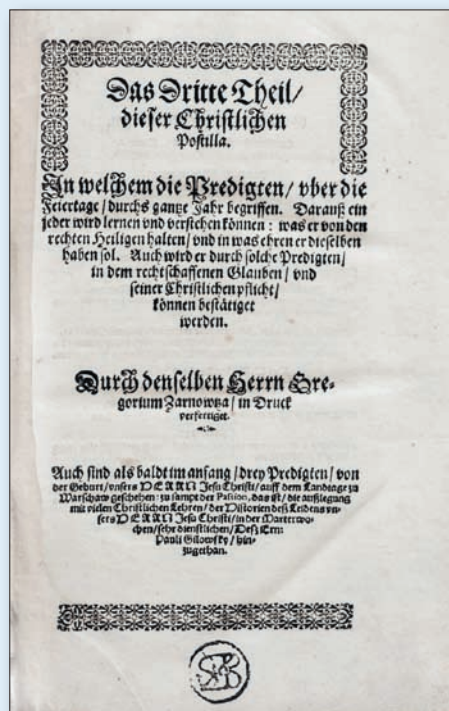 Das Dritte Theil/
dieser Christlichen
Postilla.
In welchem die Predigten/ vber die
Feiertage/ durchs gantze Jahr begriffen. Darauß ein
jeder wird lernen vnd verstehen können: was er von den
rechten Heiligen halten/ vnd in was ehren er dieselben
haben sol. Auch wird er durch solche Predigten/
in dem rechtschaffenen Glauben/ vnd
seiner Christlichen pflicht/
können bestätiget
werden.
Durch denselben Herrn Gre-
gorium Zarnowtza/ in Druck
verfertiget.
Auch sind als baldt im anfang/ drey Predigten/ von
der Geburt/ vnsers HERRN Jesu Christi/ auff dem Landtage zu
Warschaw geschehen: zu sampt der Passion, das ist/ die außlegung
mit vielen Christlichen Lehren/ der Historien deß Leidens vn-
sers HERRN Jesu Christi/ in der Marterwo-
chen/ sehr dienstlichen/ Deß Ern:
Pauli Gilowsky/ hin-
zugethan.